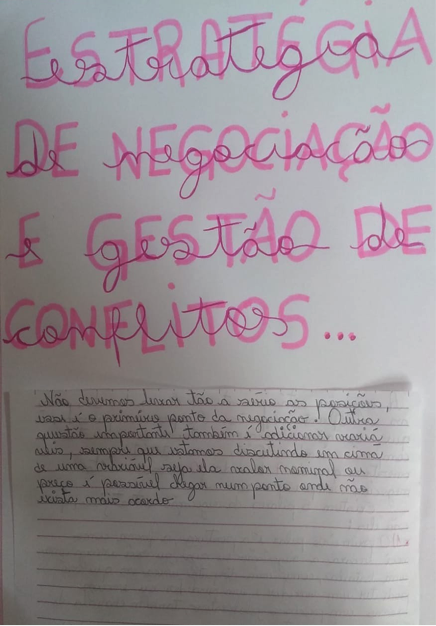 ESTRATÉGIA
estratégia
DE NEGOCIAÇÃO
de negociação
E GESTÃO DE
e gestão de
CONFLITOS...
conflitos
Não devemos levar tão a sério as posições,
esse é o primeiro ponto da negociação. Outra
questão importante também é adicionar variá
veis, sempre que estamos discutindo em cima
de uma variável seja ela valor nominal ou
preço é possível chegar num ponto onde não
exista mais acordo